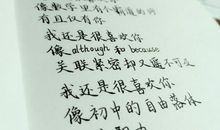 像数学里有个霸道的词
有且仅有你
我还是很喜欢你
像although和because
关联紧密却又遥不可及
我还是很喜欢你
像初中的自由落体